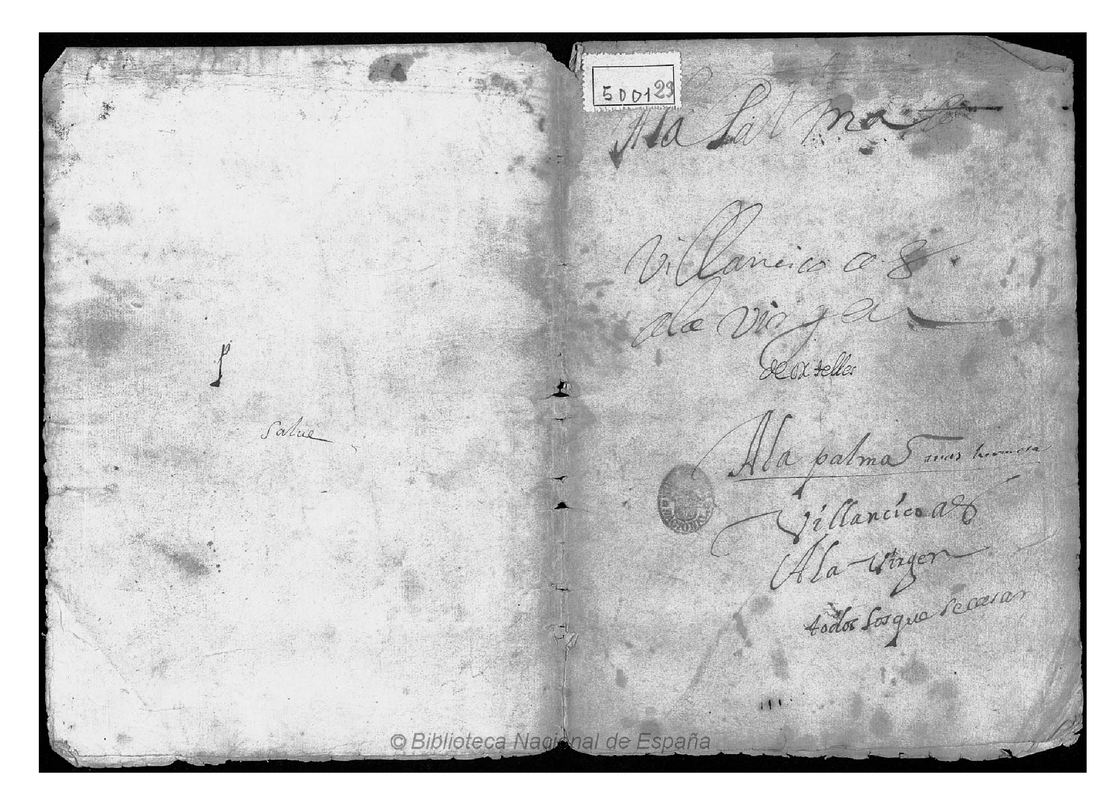 salue
500129
Ala Palma
Villancico a 8
ala virgen
Ala palma mas hermosa
Villancico a 8
Ala virgen
todos los que se
© Biblioteca Nacional de España